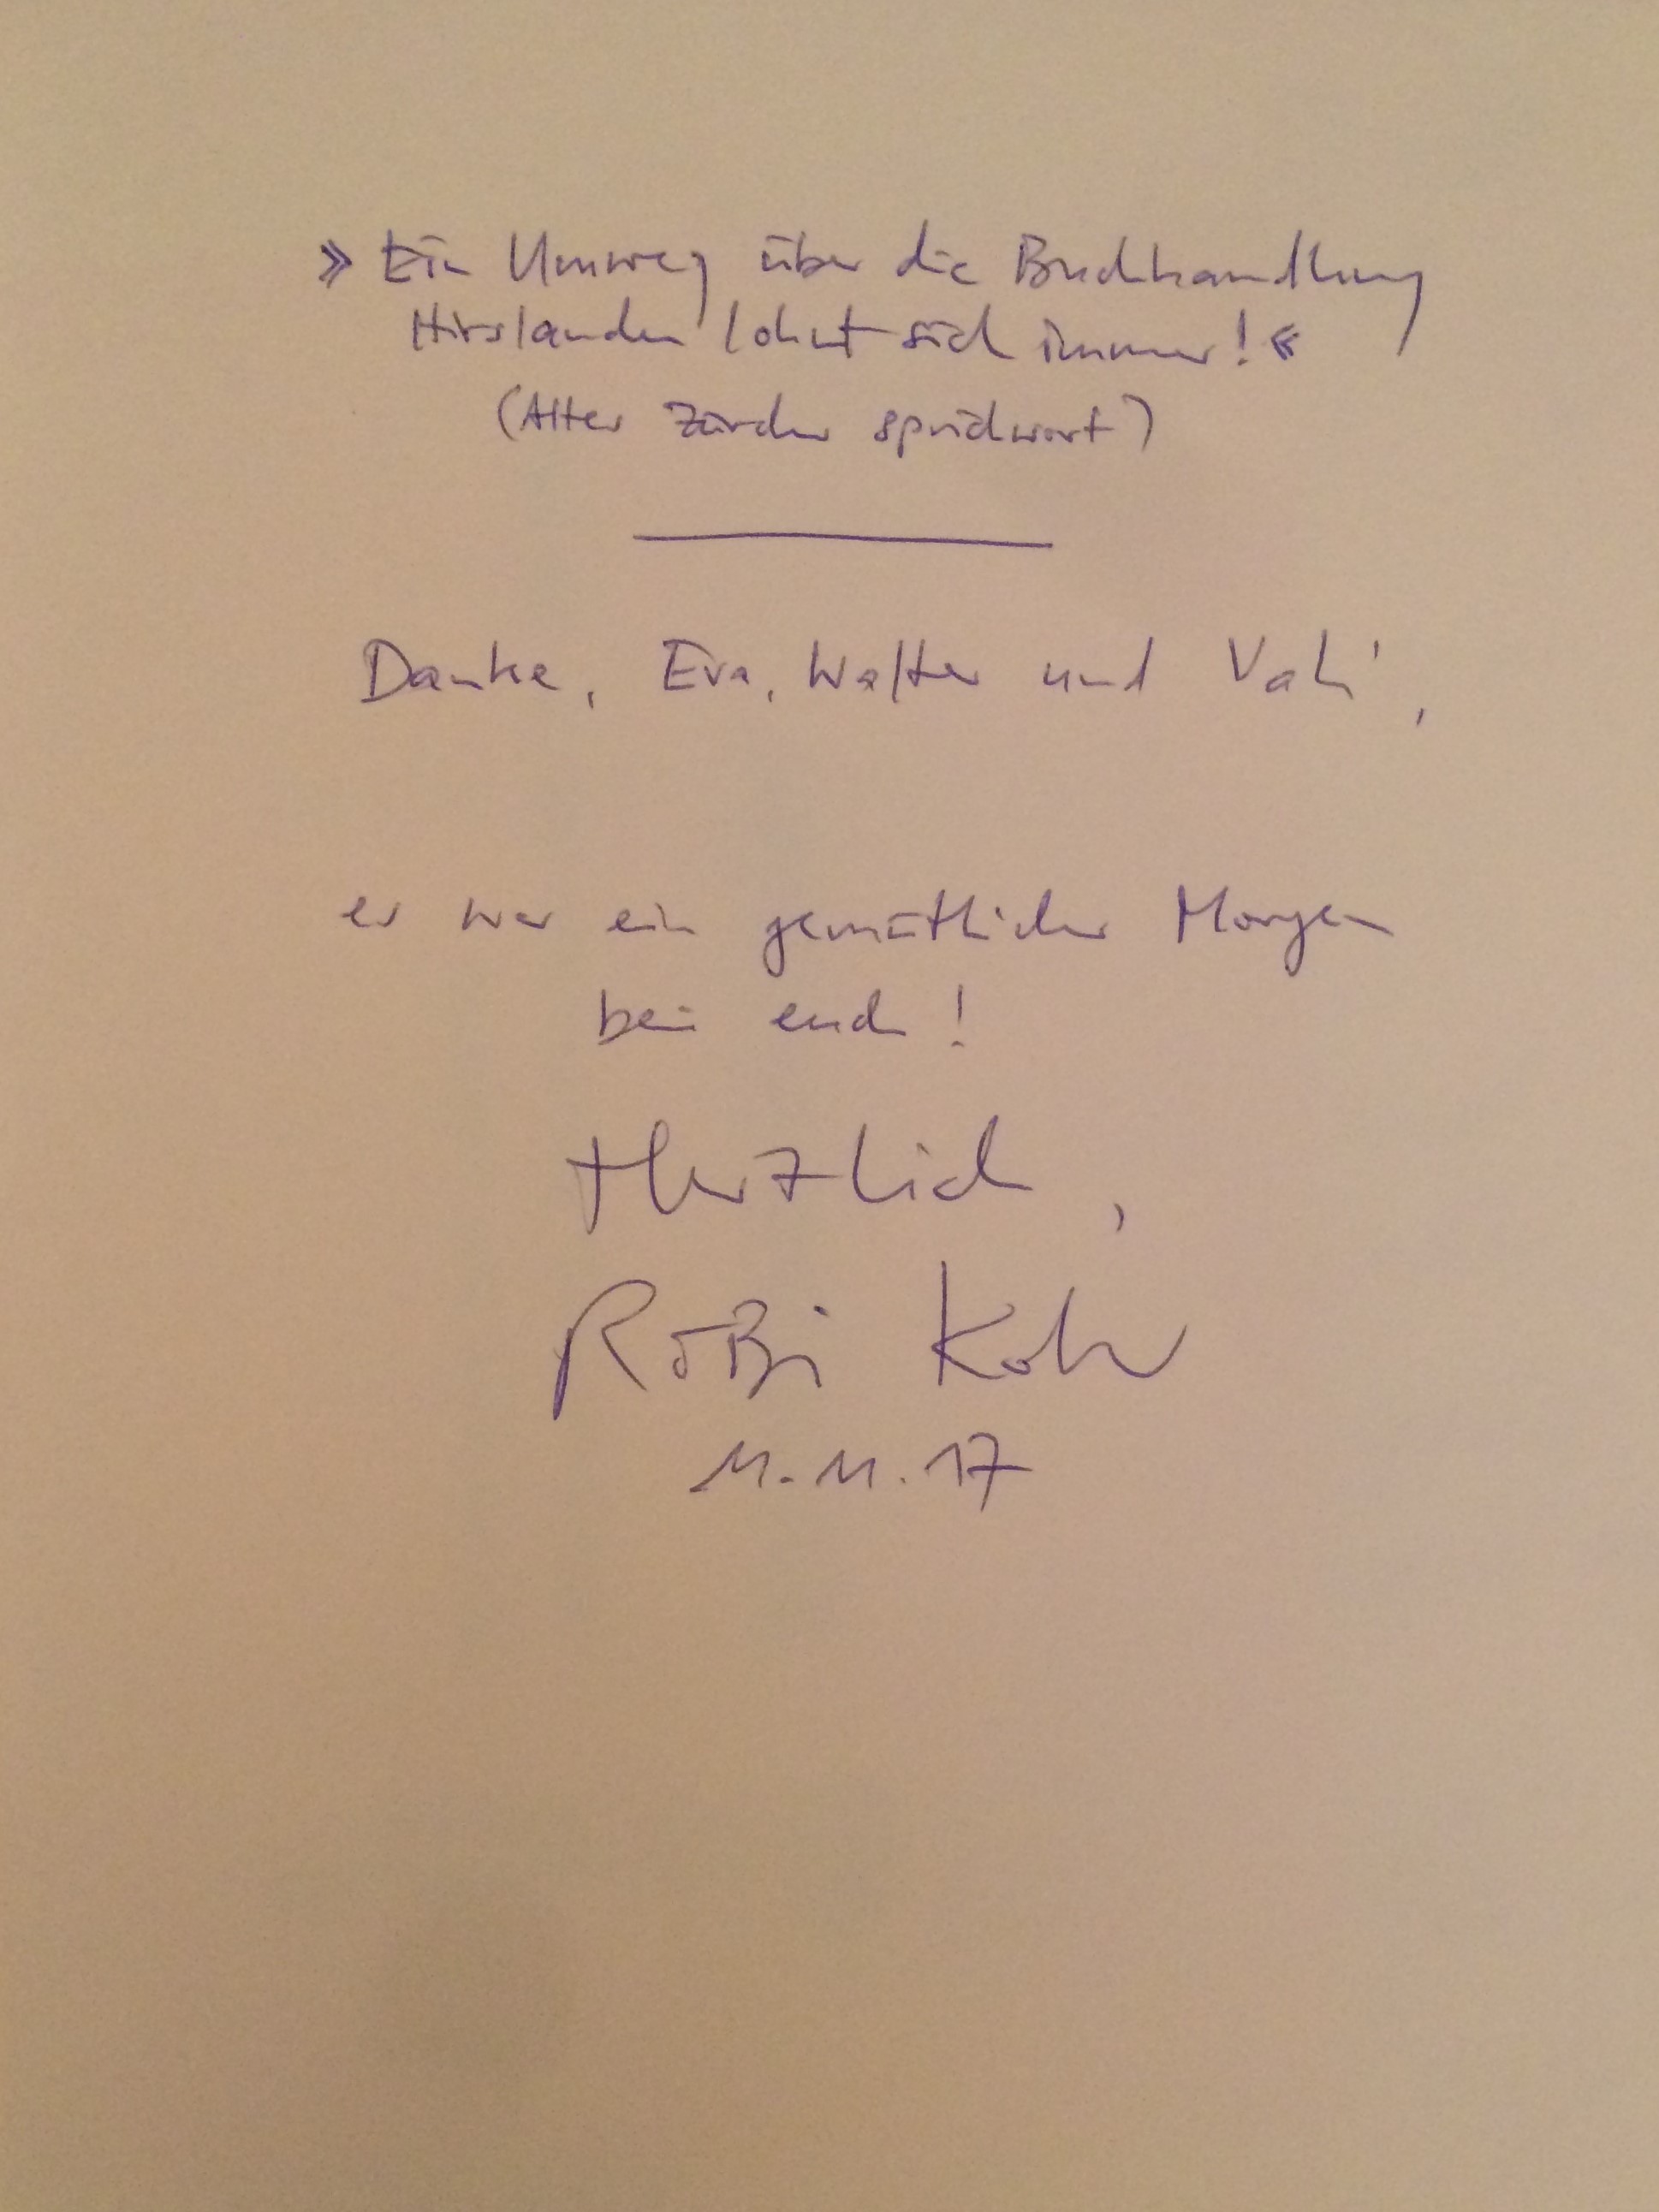 » Ein Umweg über die Buchhandlung
Hirslanden lohnt sich immer! «
(Altes Zürcher Sprichwort)
Danke, Eva, Walter und Vali,
es war ein gemütlicher Morgen
bei euch!
Herzlich,
Röbi Koller
11.11.17